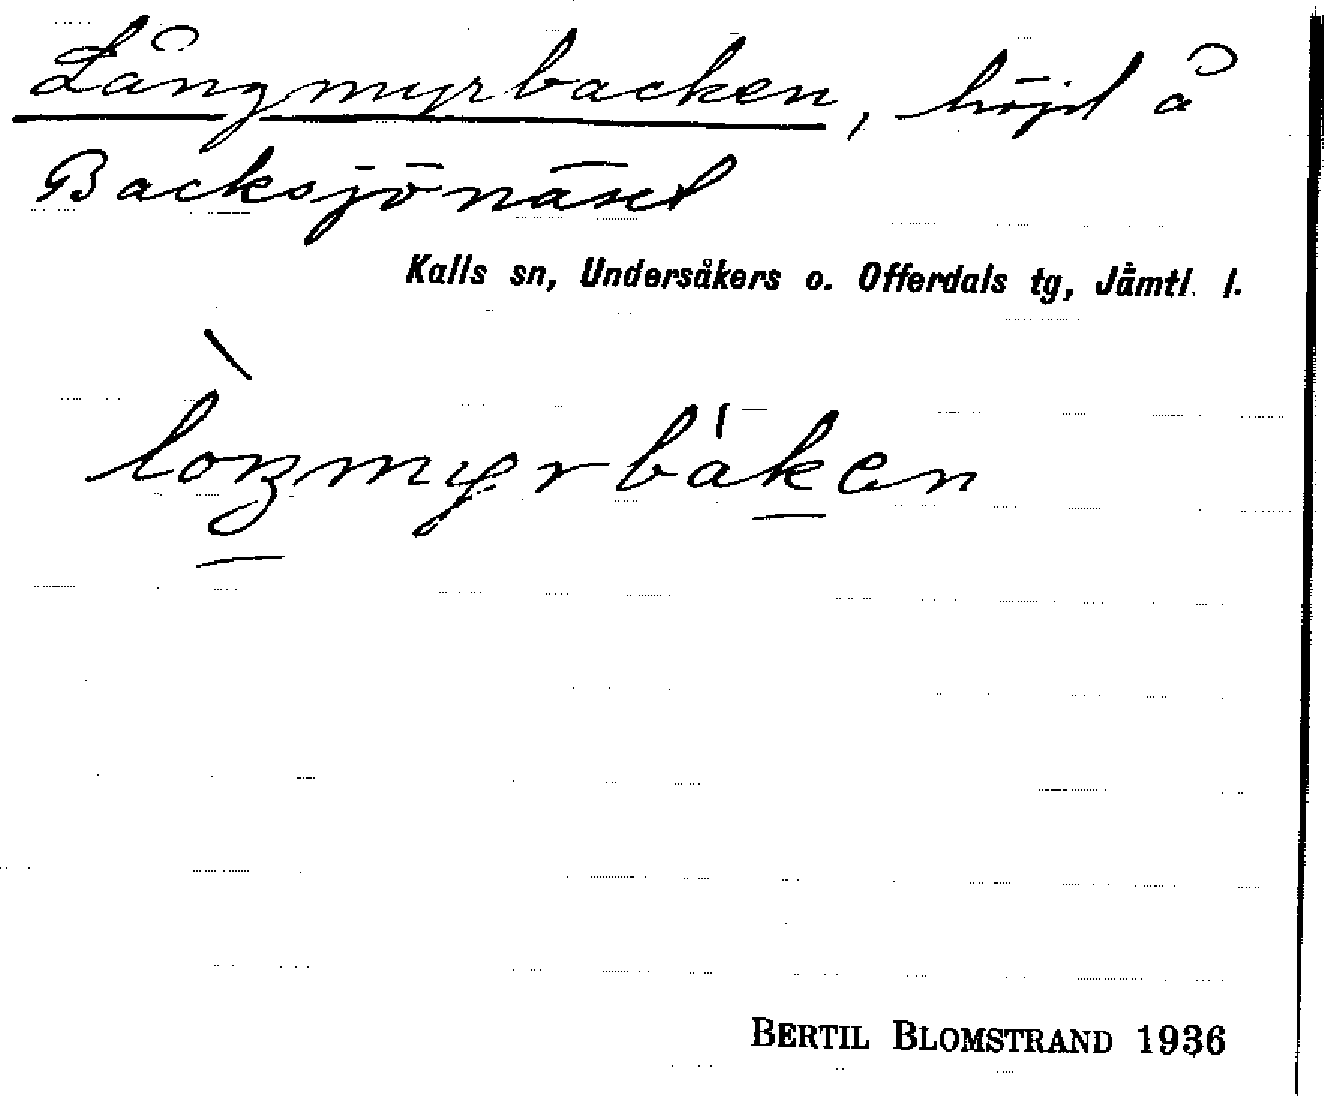 Långmyrbacken, höjd å
Backsjönäset
Kalls sn, Undersåkers o. Offerdals tg, Jämtl. l.
lòŋmyrbáken
BERTIL BLOMSTRAND 1936